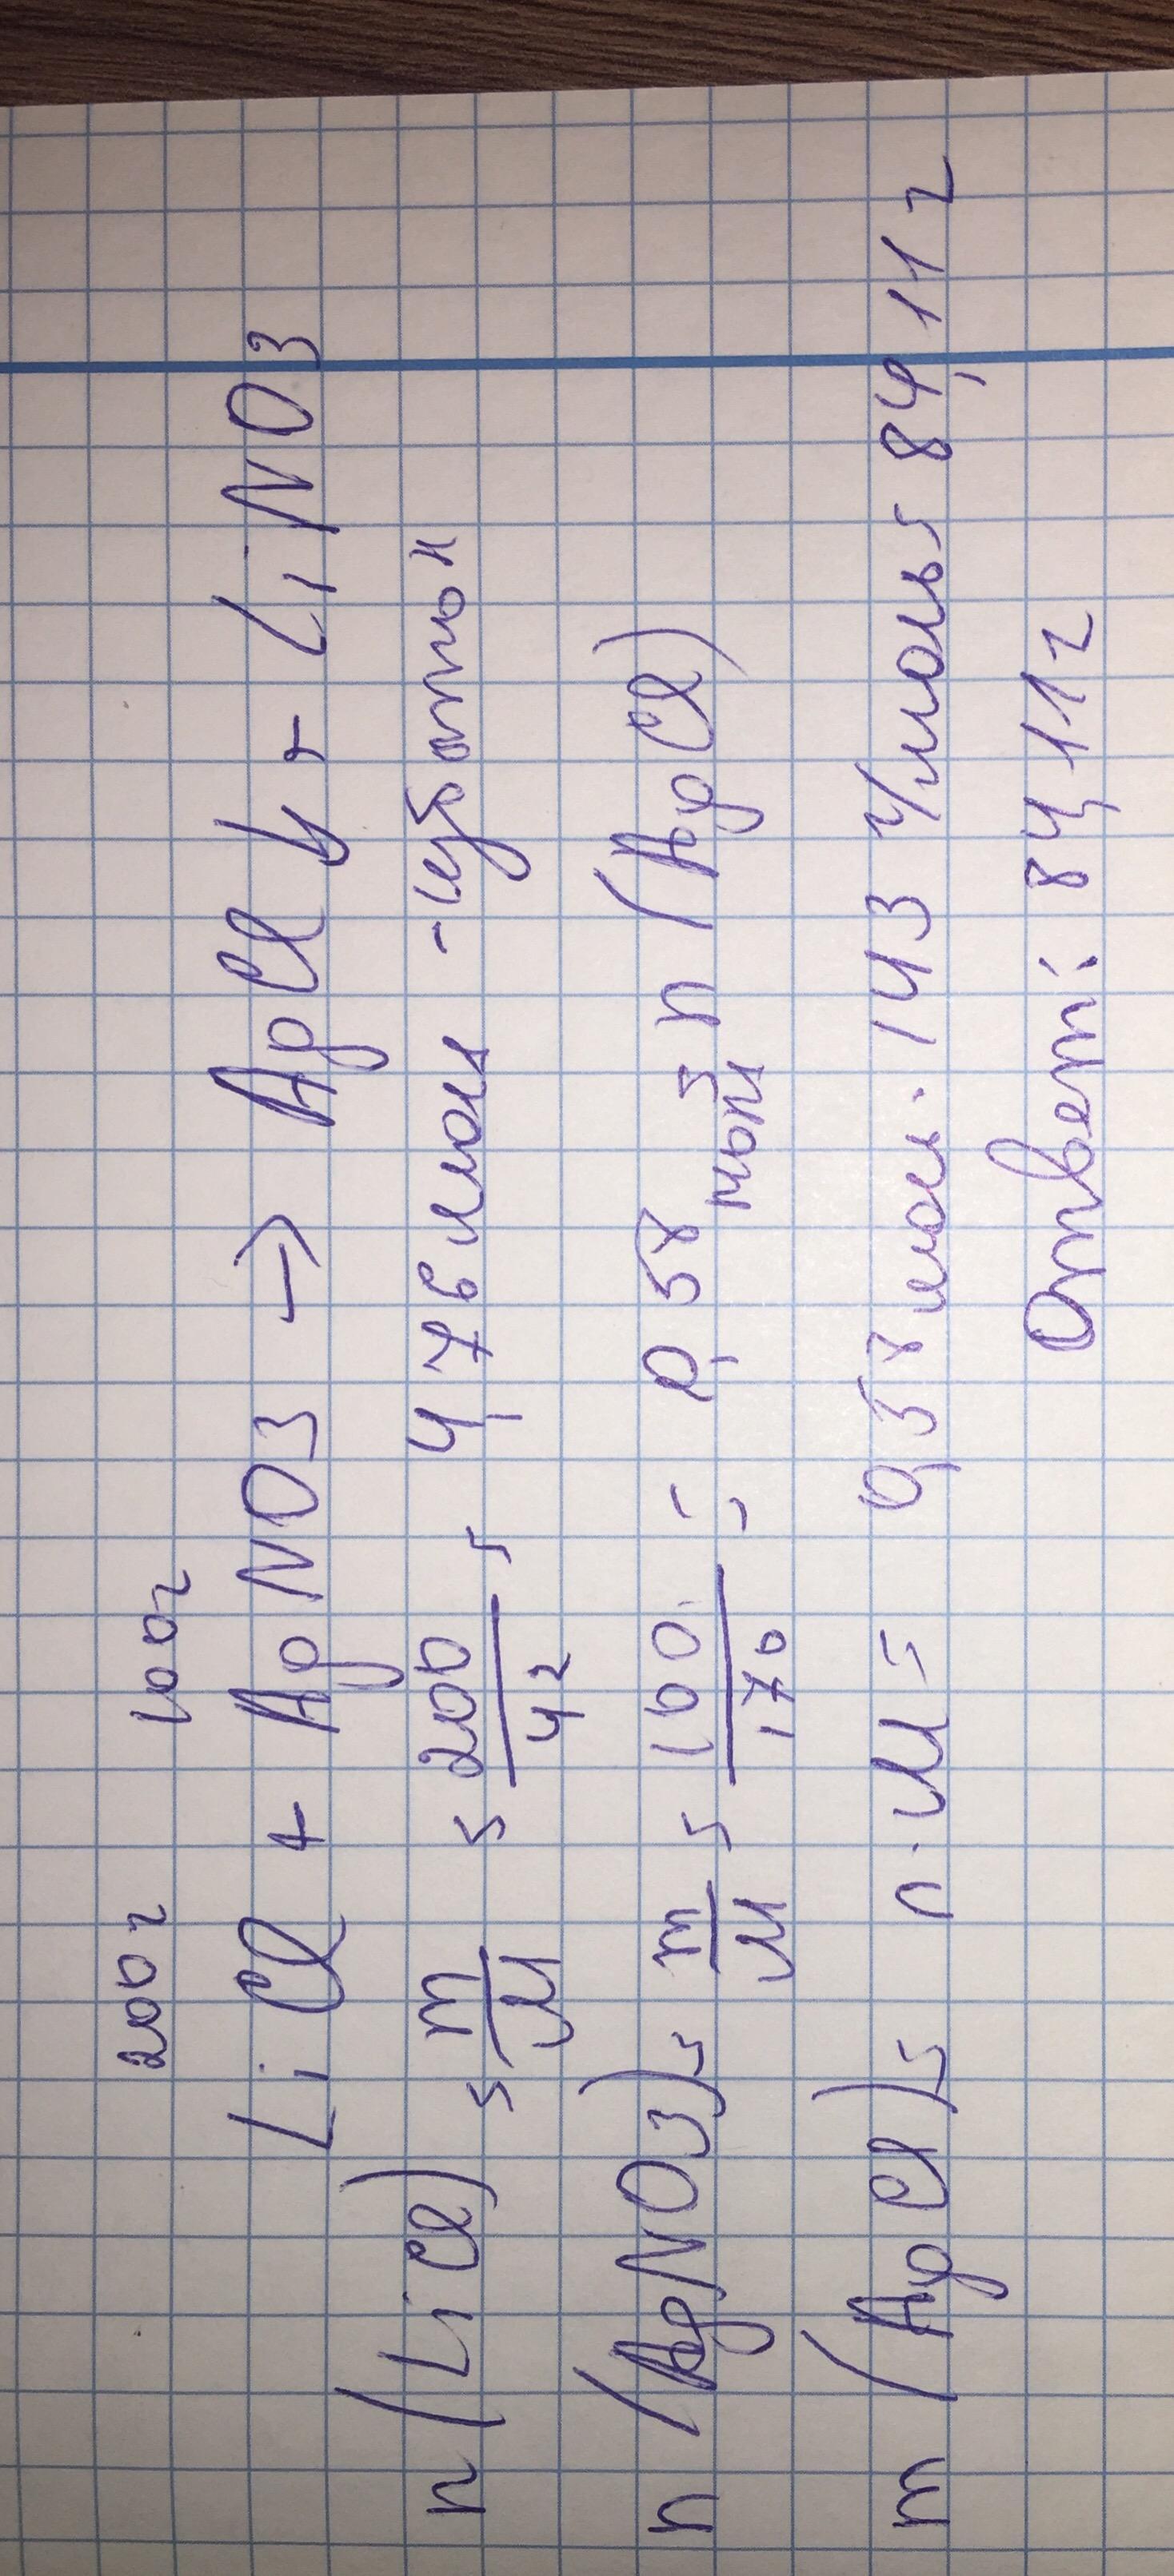 200г 100г
LiCl + AgNO3 → AgCl↓ + LiNO3
n (LiCl) = m/M = 200/42 = 4,76 моль - избыток
n (AgNO3) = m/M = 100/170 = 0,58 моль = n (AgCl)
m (AgCl) = n · M = 0,58 моль · 143 г/моль = 84,11 г
Ответ: 84,11 г